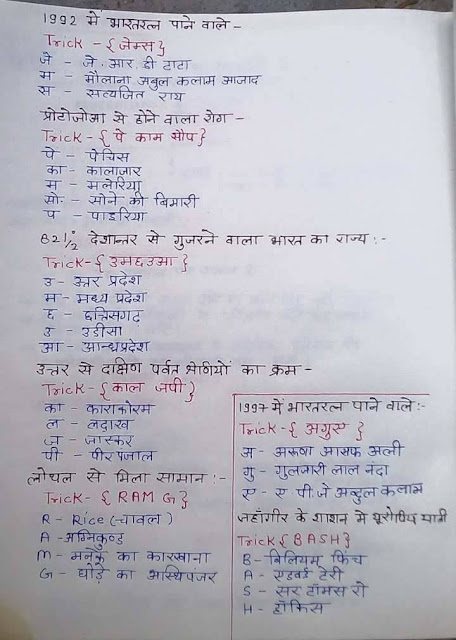 1992 में भारतरत्न पाने वाले -
Trick - { जेमस }
जे - जे. आर. डी टाटा
म - मौलाना अबुल कलाम आजाद
स - सत्यजित राय
प्रोटोजोआ से होने वाला रोग -
Trick - { पे काम सोप }
पे - पेचिस
का - कालाजार
म - मलेरिया
सो - सोने की बिमारी
प - पाइरिया
82 1/2° देशान्तर से गुजरने वाला भारत का राज्य :-
Trick - { उमछउआ }
उ - उत्तर प्रदेश
म - मध्य प्रदेश
छ - छत्तिसगढ़
उ - उडीसा
आ - आन्ध्रप्रदेश
उत्तर से दाक्षिण पर्वत श्रेणियों का क्रम -
Trick - { काल जपी }
का - काराकोरम
ल - लदाख
ज - जास्कर
पी - पीरपंजाल
लोथल से मिला सामान :-
Trick - { RAM G }
R - Rice (चावल)
A - अग्निकुण्ड
M - मनके का कारखाना
G - घोड़े का अस्थिपंजर
1997 में भारतरत्न पाने वाले :-
Trick - { अगुए }
अ - अरूणा आसफ अली
गु - गुलजारी लाल नंदा
ए - ए पी जे अब्दुल कलाम
जहाँगीर के शासन में यूरोपिय यात्री
Trick { BASH }
B - विलियम् फिंच
A - एडवर्ड टेरी
S - सर टॉमस रो
H - हॉकिंस